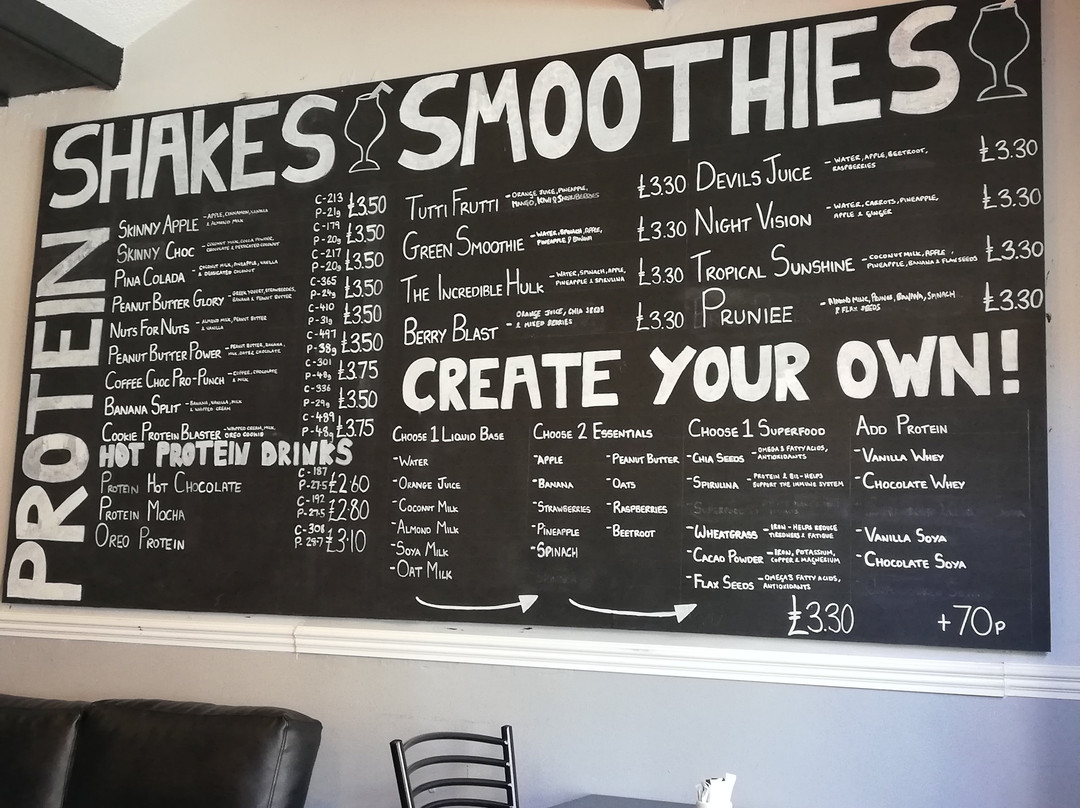 PROTEIN
SHAKES
SKINNY APPLE - APPLE, CINNAMON, VANILLA & ALMOND MILK C-213 P-21g £3.50
SKINNY CHOC - COCONUT MILK, COCOA POWDER, CHOCOLATE & DESICCATED COCONUT C-179 P-20g £3.50
PINA COLADA - COCONUT MILK, PINEAPPLE, VANILLA & DESICCATED COCONUT C-217 P-20g £3.50
PEANUT BUTTER GLORY - GREEK YOGURT, STRAWBERRIES, BANANA & PEANUT BUTTER C-365 P-24g £3.50
NUTS FOR NUTS - ALMOND MILK, PEANUT BUTTER & VANILLA C-410 P-31g £3.50
PEANUT BUTTER POWER - PEANUT BUTTER, BANANA, MILK, OATS & CHOCOLATE C-497 P-38g £3.50
COFFEE CHOC PRO-PUNCH - COFFEE, CHOCOLATE & MILK C-301 P-48g £3.75
BANANA SPLIT - BANANA, VANILLA, MILK & WHIPPED CREAM C-336 P-29g £3.50
COOKIE PROTEIN BLASTER - WHIPPED CREAM, MILK, OREO COOKIE C-489 P-48g £3.75
HOT PROTEIN DRINKS
PROTEIN HOT CHOCOLATE C-187 P-27.5 £2.60
PROTEIN MOCHA C-192 P-27.5 £2.80
OREO PROTEIN C-308 P-29.7 £3.10
SMOOTHIES
TUTTI FRUTTI - ORANGE JUICE, PINEAPPLE, MANGO, KIWI & STRAWBERRIES £3.30
GREEN SMOOTHIE - WATER, SPINACH, APPLE, PINEAPPLE & BANANA £3.30
THE INCREDIBLE HULK - WATER, SPINACH, APPLE, PINEAPPLE & SPIRULINA £3.30
BERRY BLAST ORANGE JUICE, CHIA SEEDS & MIXED BERRIES £3.30
DEVILS JUICE - WATER, APPLE, BEETROOT, RASPBERRIES £3.30
NIGHT VISION - WATER, CARROTS, PINEAPPLE, APPLE & GINGER £3.30
TROPICAL SUNSHINE - COCONUT MILK, APPLE, PINEAPPLE, BANANA & FLAX SEEDS £3.30
PRUNIEE - ALMOND MILK, PRUNES, BANANA, SPINACH & FLAX SEEDS £3.30
CREATE YOUR OWN!
CHOOSE 1 LIQUID BASE
-WATER
-ORANGE JUICE
-COCONUT MILK
-ALMOND MILK
-SOYA MILK
-OAT MILK
CHOOSE 2 ESSENTIALS
-APPLE
-BANANA
-STRAWBERRIES
-PINEAPPLE
-SPINACH
-PEANUT BUTTER
-OATS
-RASPBERRIES
-BEETROOT
CHOOSE 1 SUPERFOOD
-CHIA SEEDS - OMEGA 3 FATTY ACIDS, ANTIOXIDANTS
-SPIRULINA - PROTEIN & B12-HELPS SUPPORT THE IMMUNE SYSTEM
-WHEATGRASS - IRON - HELPS REDUCE TIREDNESS & FATIGUE
-CACAO POWDER - IRON, POTASSIUM, COPPER & MAGNESIUM
-FLAX SEEDS - OMEGA 3 FATTY ACIDS, ANTIOXIDANTS
£3.30
ADD PROTEIN
-VANILLA WHEY
-CHOCOLATE WHEY
-VANILLA SOYA
-CHOCOLATE SOYA
+70P